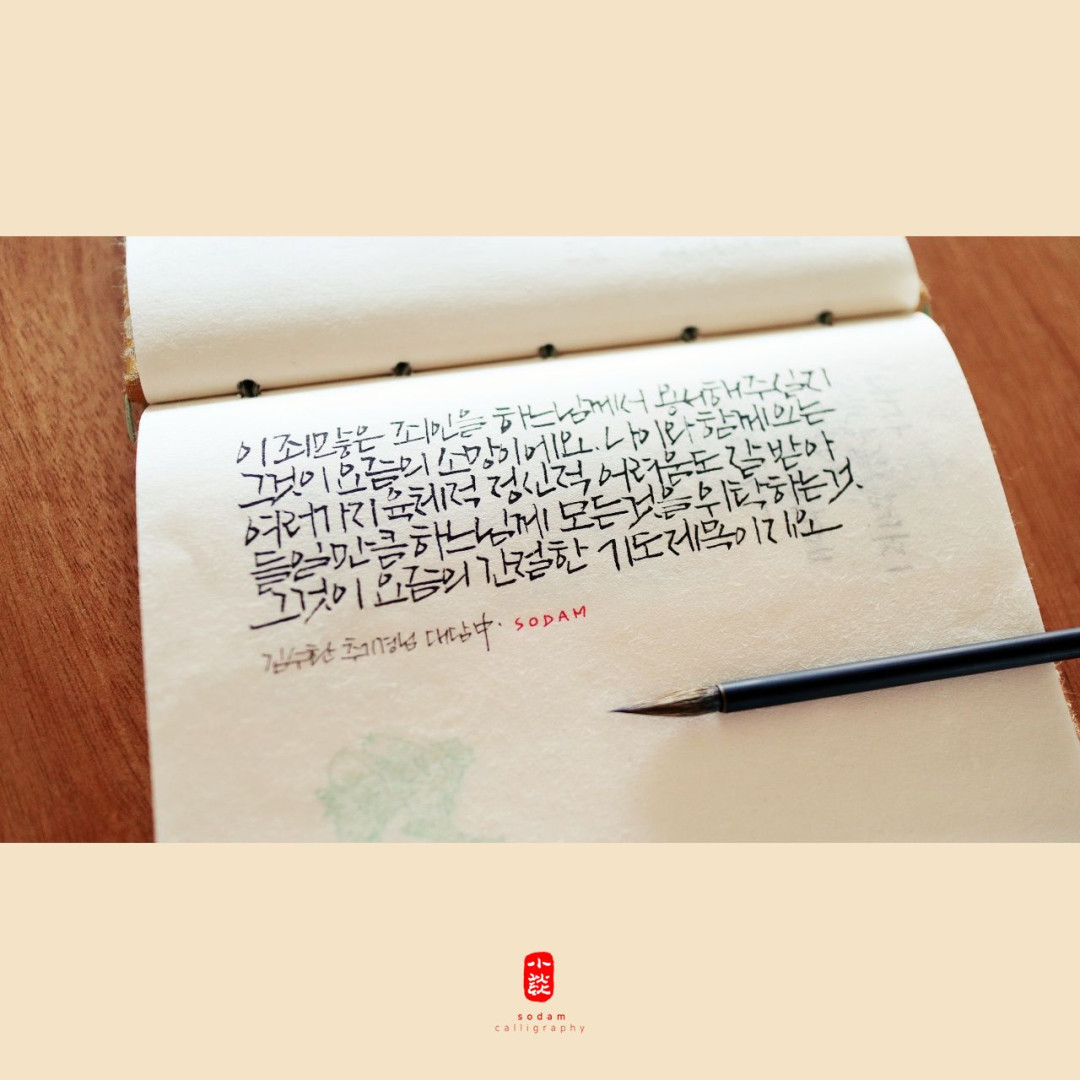 이 죄많은 죄인을 하느님께서 용서해주실지
그것이 요즘의 소망이에요. 나이와 함께오는
여러가지 육체적 정신적 어려움도 잘 받아
들일만큼 하느님께 모든것을 위탁하는것.
그것이 요즘의 간절한 기도제목이래요
김수환 추기경님 대담中. SODAM
小談
sodam
calligraphy